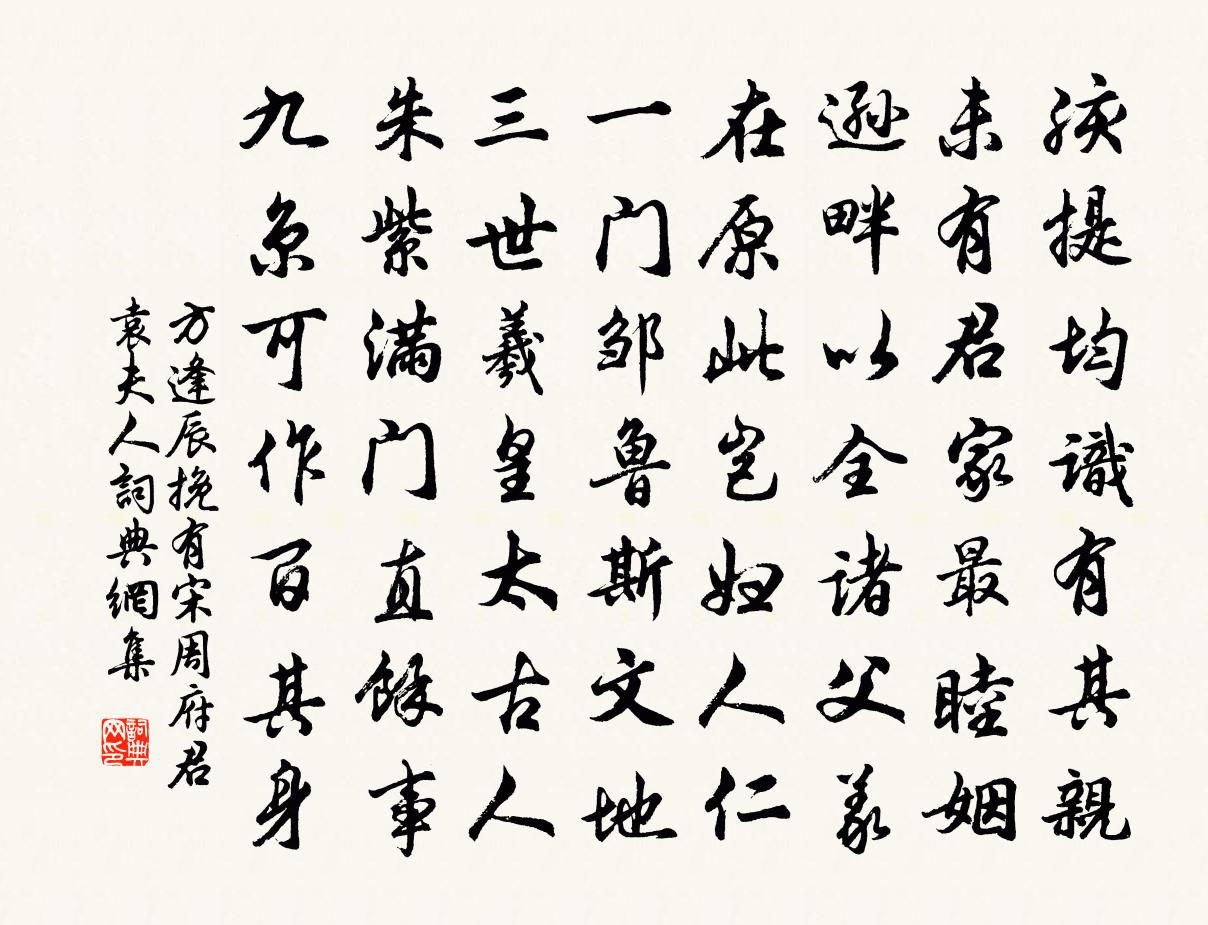 孩提均識有其親
未有君家最睦姻
遜畔以全诸父義
在原此岂妇人仁
一门邹鲁斯文地
三世羲皇太古人
朱紫满门直餘事
九京可作百其身
方逢辰挽有宋周府君
袁夫人詞典網集
詞典网印